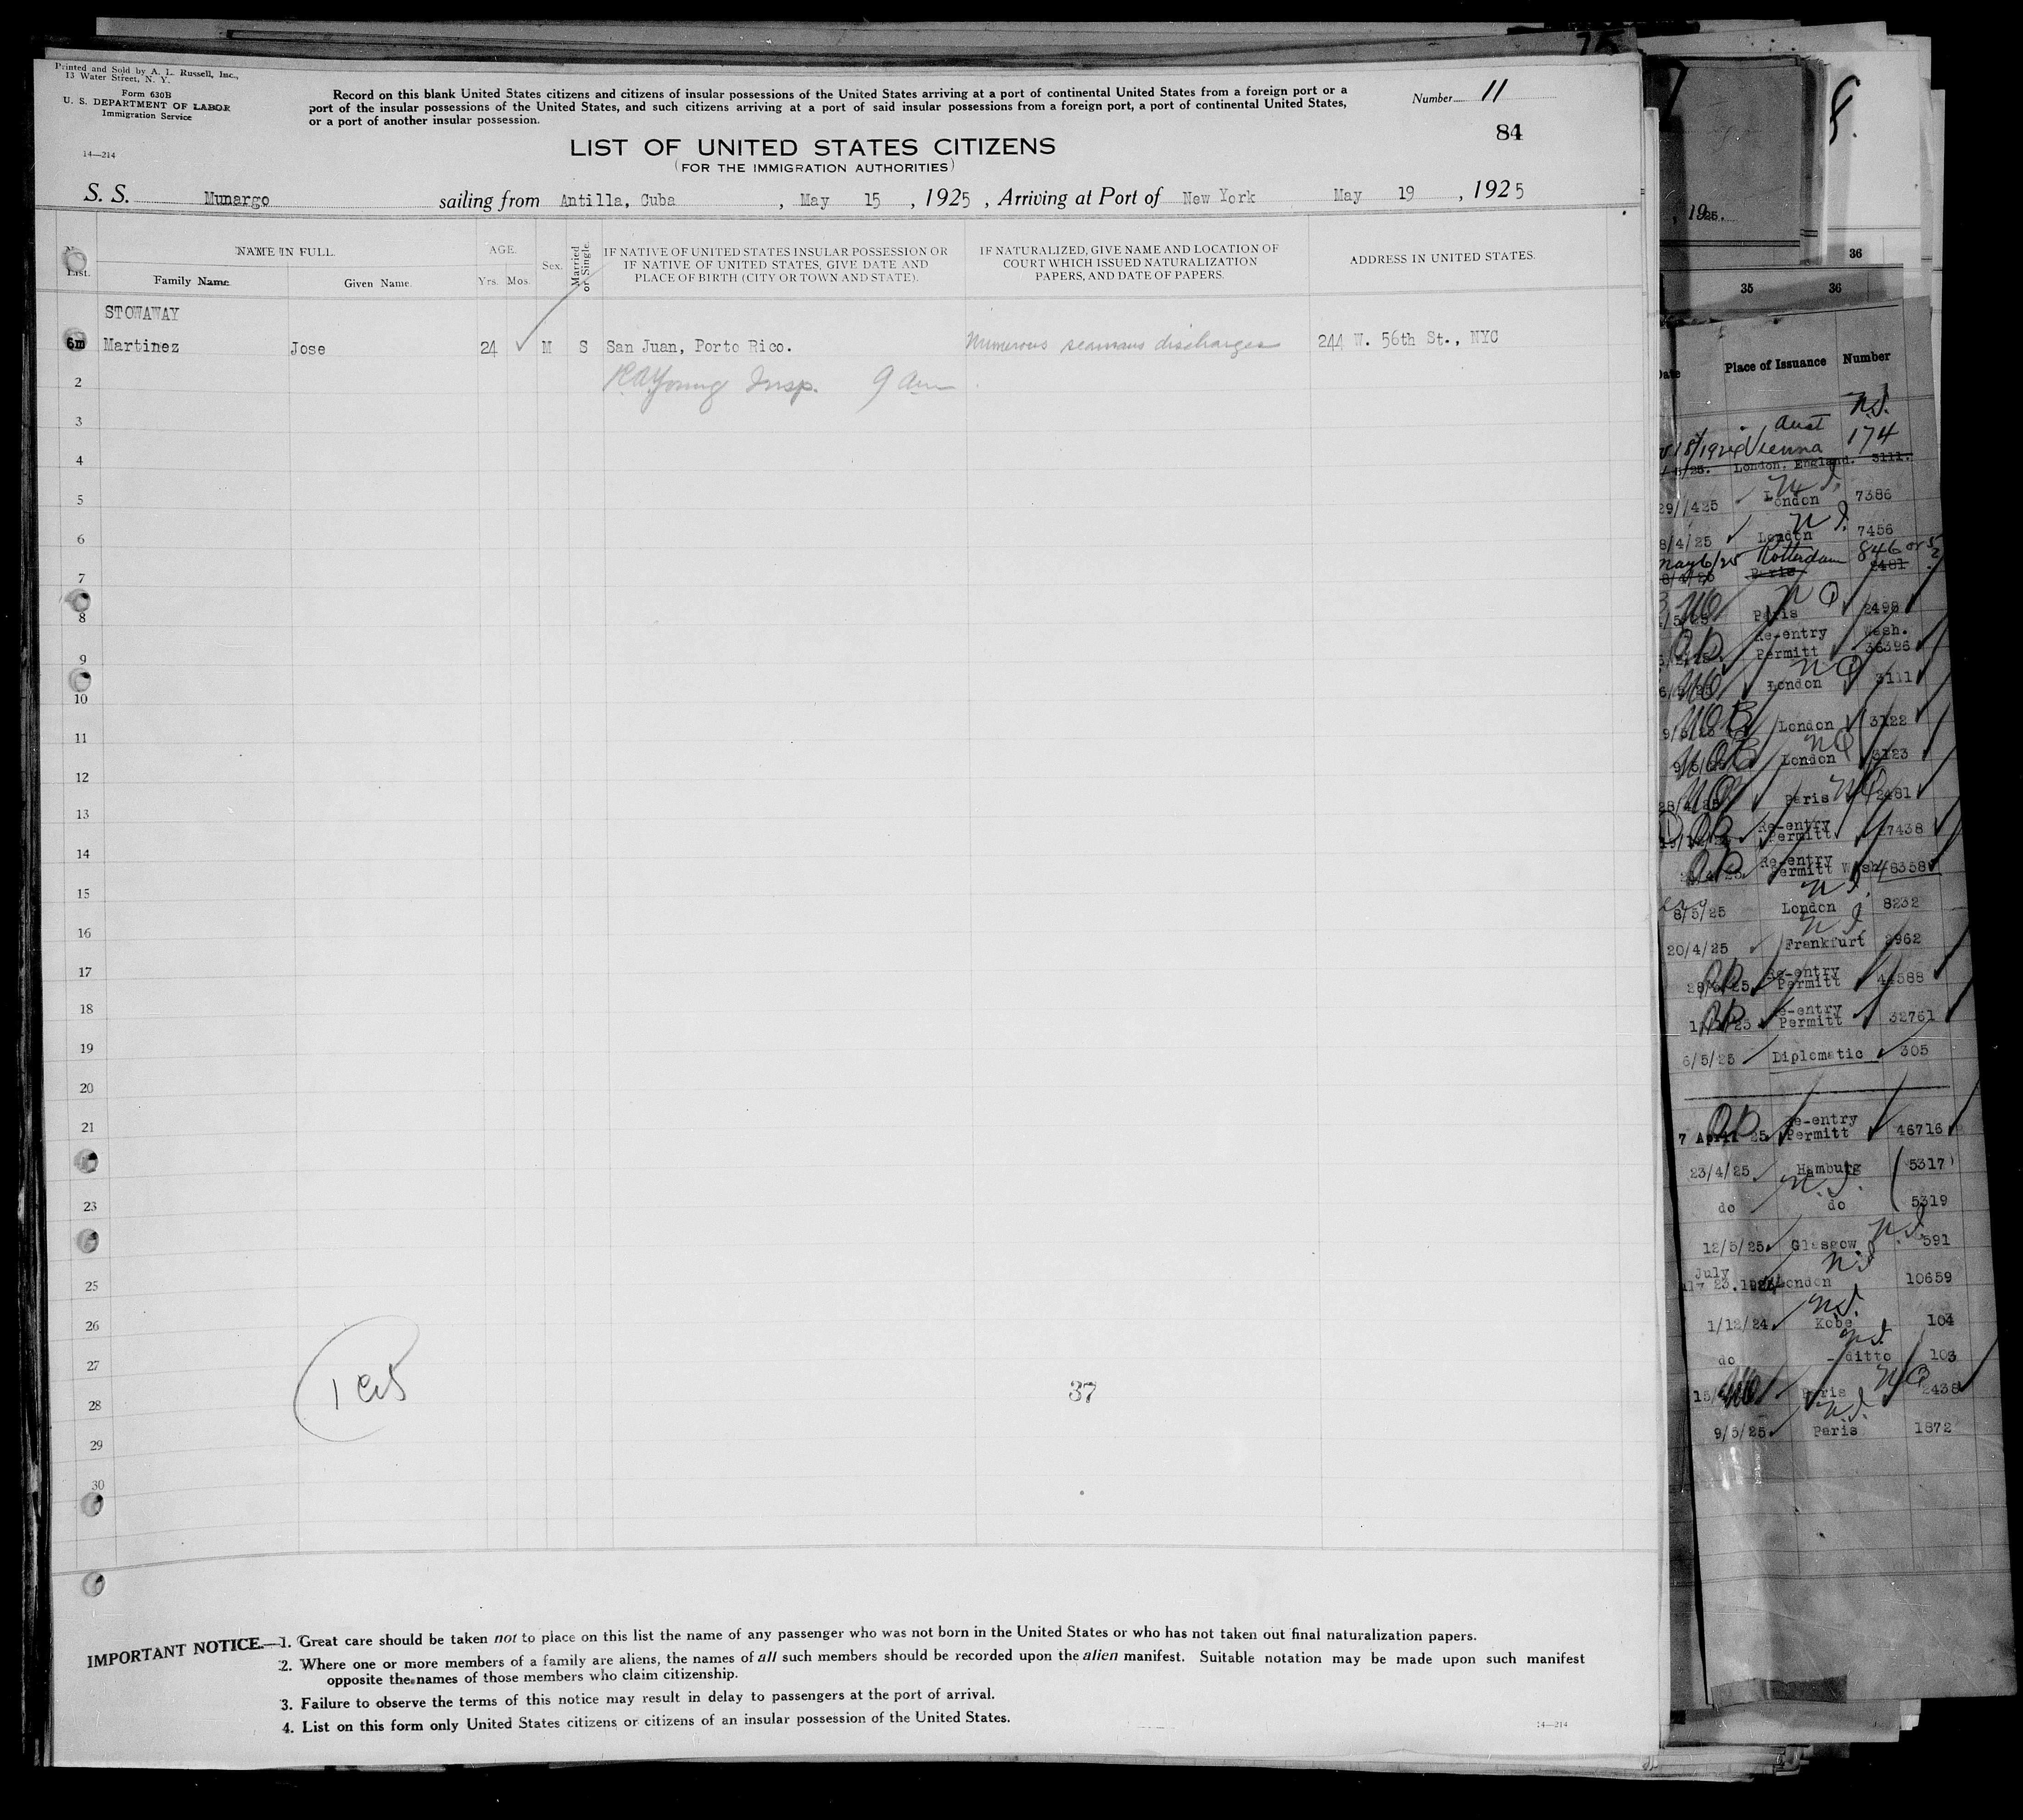 Printed and Sold by A. L. Russell, Inc.,
13 Water Street, N. Y.
Form 630B
U. S. DEPARTMENT OF LABOR
Immigration Service
14—214
Record on this blank United States citizens and citizens of insular possessions of the United States arriving at a port of continental United States from a foreign port or a
port of the insular possessions of the United States, and such citizens arriving at a port of said insular possessions from a foreign port, a port of continental United States,
or a port of another insular possession.
Number 11
84
LIST OF UNITED STATES CITIZENS
(FOR THE IMMIGRATION AUTHORITIES)
S. S. Munargo sailing from Antilla, Cuba , May 15 , 1925 , Arriving at Port of New York May 19 , 1925
List.
NAME IN FULL.
Family Name
Given Name.
AGE.
Yrs. Mos.
Sex.
Married or Single.
IF NATIVE OF UNITED STATES INSULAR POSSESSION OR
IF NATIVE OF UNITED STATES, GIVE DATE AND
PLACE OF BIRTH (CITY OR TOWN AND STATE).
IF NATURALIZED, GIVE NAME AND LOCATION OF
COURT WHICH ISSUED NATURALIZATION
PAPERS, AND DATE OF PAPERS.
ADDRESS IN UNITED STATES.
STOWAWAY
Martinez Jose 24 M S San Juan, Porto Rico. Numerous seamans discharges 244 W. 56th St., NYC
2 Young Insp. 9 am
3
4
5
6
7
8
9
10
11
12
13
14
15
16
17
18
19
20
21
23
25
26
27
28
29
30
37
IMPORTANT NOTICE.—1. Great care should be taken not to place on this list the name of any passenger who was not born in the United States or who has not taken out final naturalization papers.
2. Where one or more members of a family are aliens, the names of all such members should be recorded upon the alien manifest. Suitable notation may be made upon such manifest
opposite the names of those members who claim citizenship.
3. Failure to observe the terms of this notice may result in delay to passengers at the port of arrival.
4. List on this form only United States citizens or citizens of an insular possession of the United States.
14—214
, 1925.
36
35 36
Date Place of Issuance Number
Vienna 174
London, England. 3111.
London 7386
8/4/25 London 7456
May 6/25 Rotterdam 846
Paris 2481
Paris 2498
Re-entry Wash.
Permitt 36396
London 3111
London 3122
London 3123
Paris 2481
Re-entry
Permitt 27438
Re-entry
Permitt Wash
8/5/25 London 8232
20/4/25 Frankfurt 2962
Re-entry
Permitt 44588
Permitt 32761
6/5/25 Diplomatic 305
Re-entry
7 April 25 Permitt 46716
23/4/25 Hamburg 5317
do do 5319
12/5/25 Glasgow 591
July
London 10659
1/12/24 Kobe 104
do ditto 103
Paris 2438
9/5/25 Paris 1872